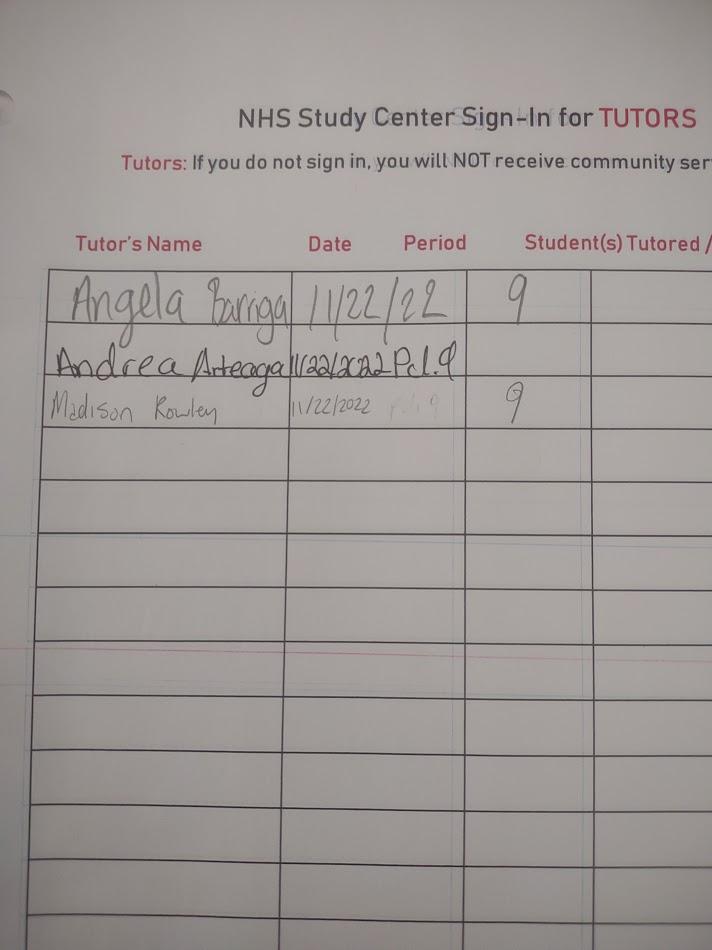 NHS Study Center Sign-In for TUTORS
Tutors: If you do not sign in, you will NOT receive community ser
Tutor's Name Date Period Student(s) Tutored /
Angela Barriga 11/22/22 9
Andrea Arteaga 11/22/2022 Pd.9
Madison Rowley 11/22/2022 pd.9 9